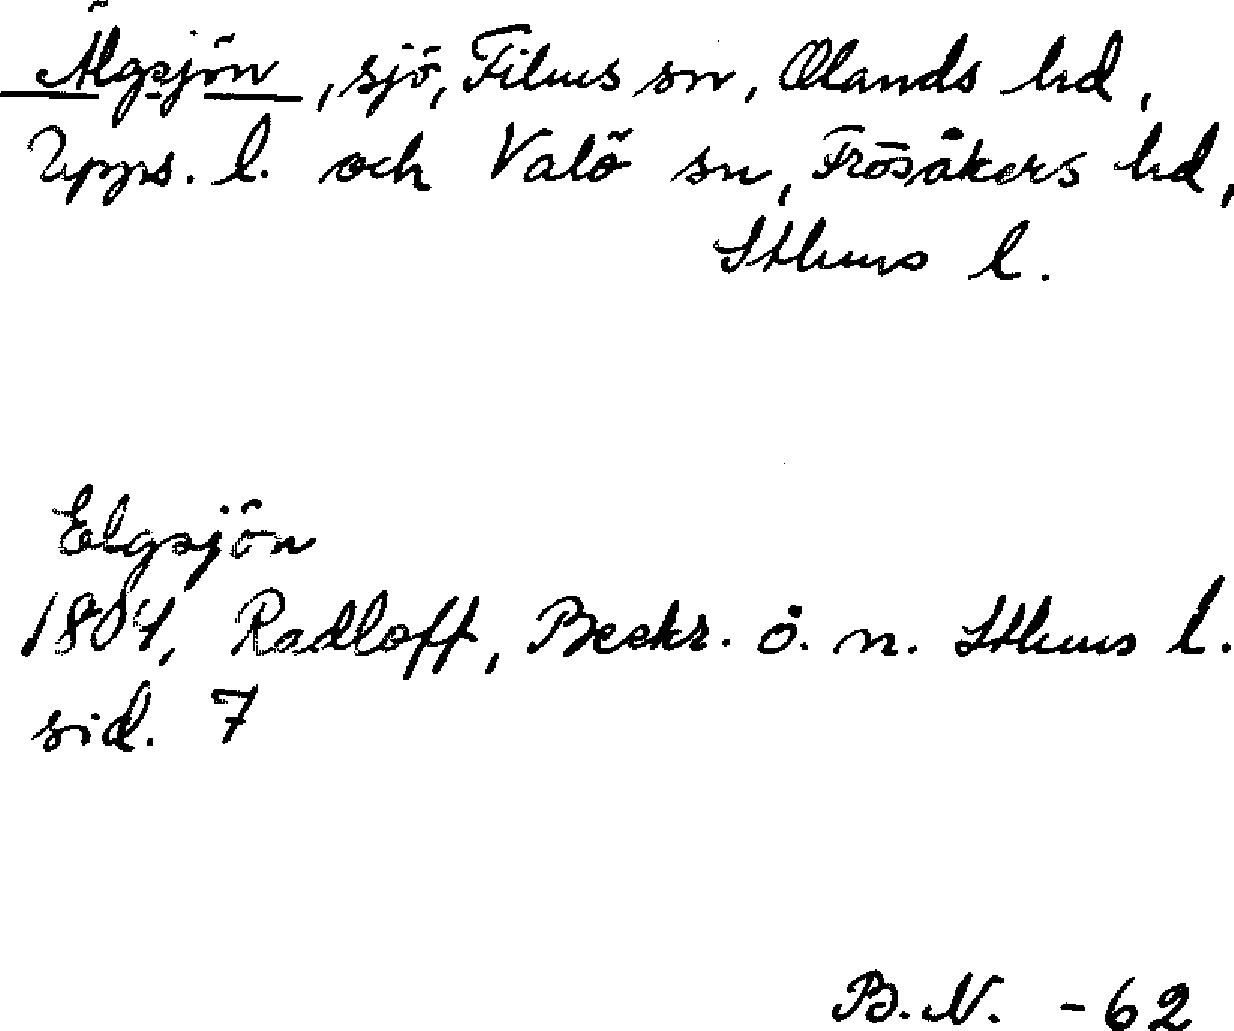 Älgsjön, sjö, Films sn, Olands hd,
Upps. l. och Valö sn, Frösåkers hd,
Sthms l.
Elgsjön
1804, Radloff, Beskr. ö. n. Sthms l.
sid. 7
B.N. -62